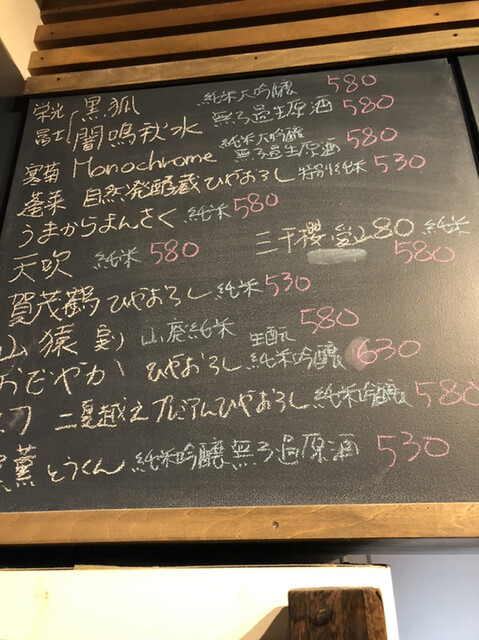 栄光冨士 黒狐 純米大吟醸 580
闇鳴秋水 無ろ過生原酒 580
寒菊 Monochrome 純米大吟醸 無ろ過生原酒 580
蓬莱 自然発酵蔵 ひやおろし 特別純米 530
うまからまんさく 純米 580
天吹 純米 580
三千櫻 愛山80 純米 580
賀茂鶴 ひやおろし 純米 530
山猿 山廃純米 580
おだやか ひやおろし 生酛 純米吟醸 630
二夏越え プレミアムひやおろし 純米吟醸 580
薫 とうくん 純米吟醸 無ろ過原酒 530